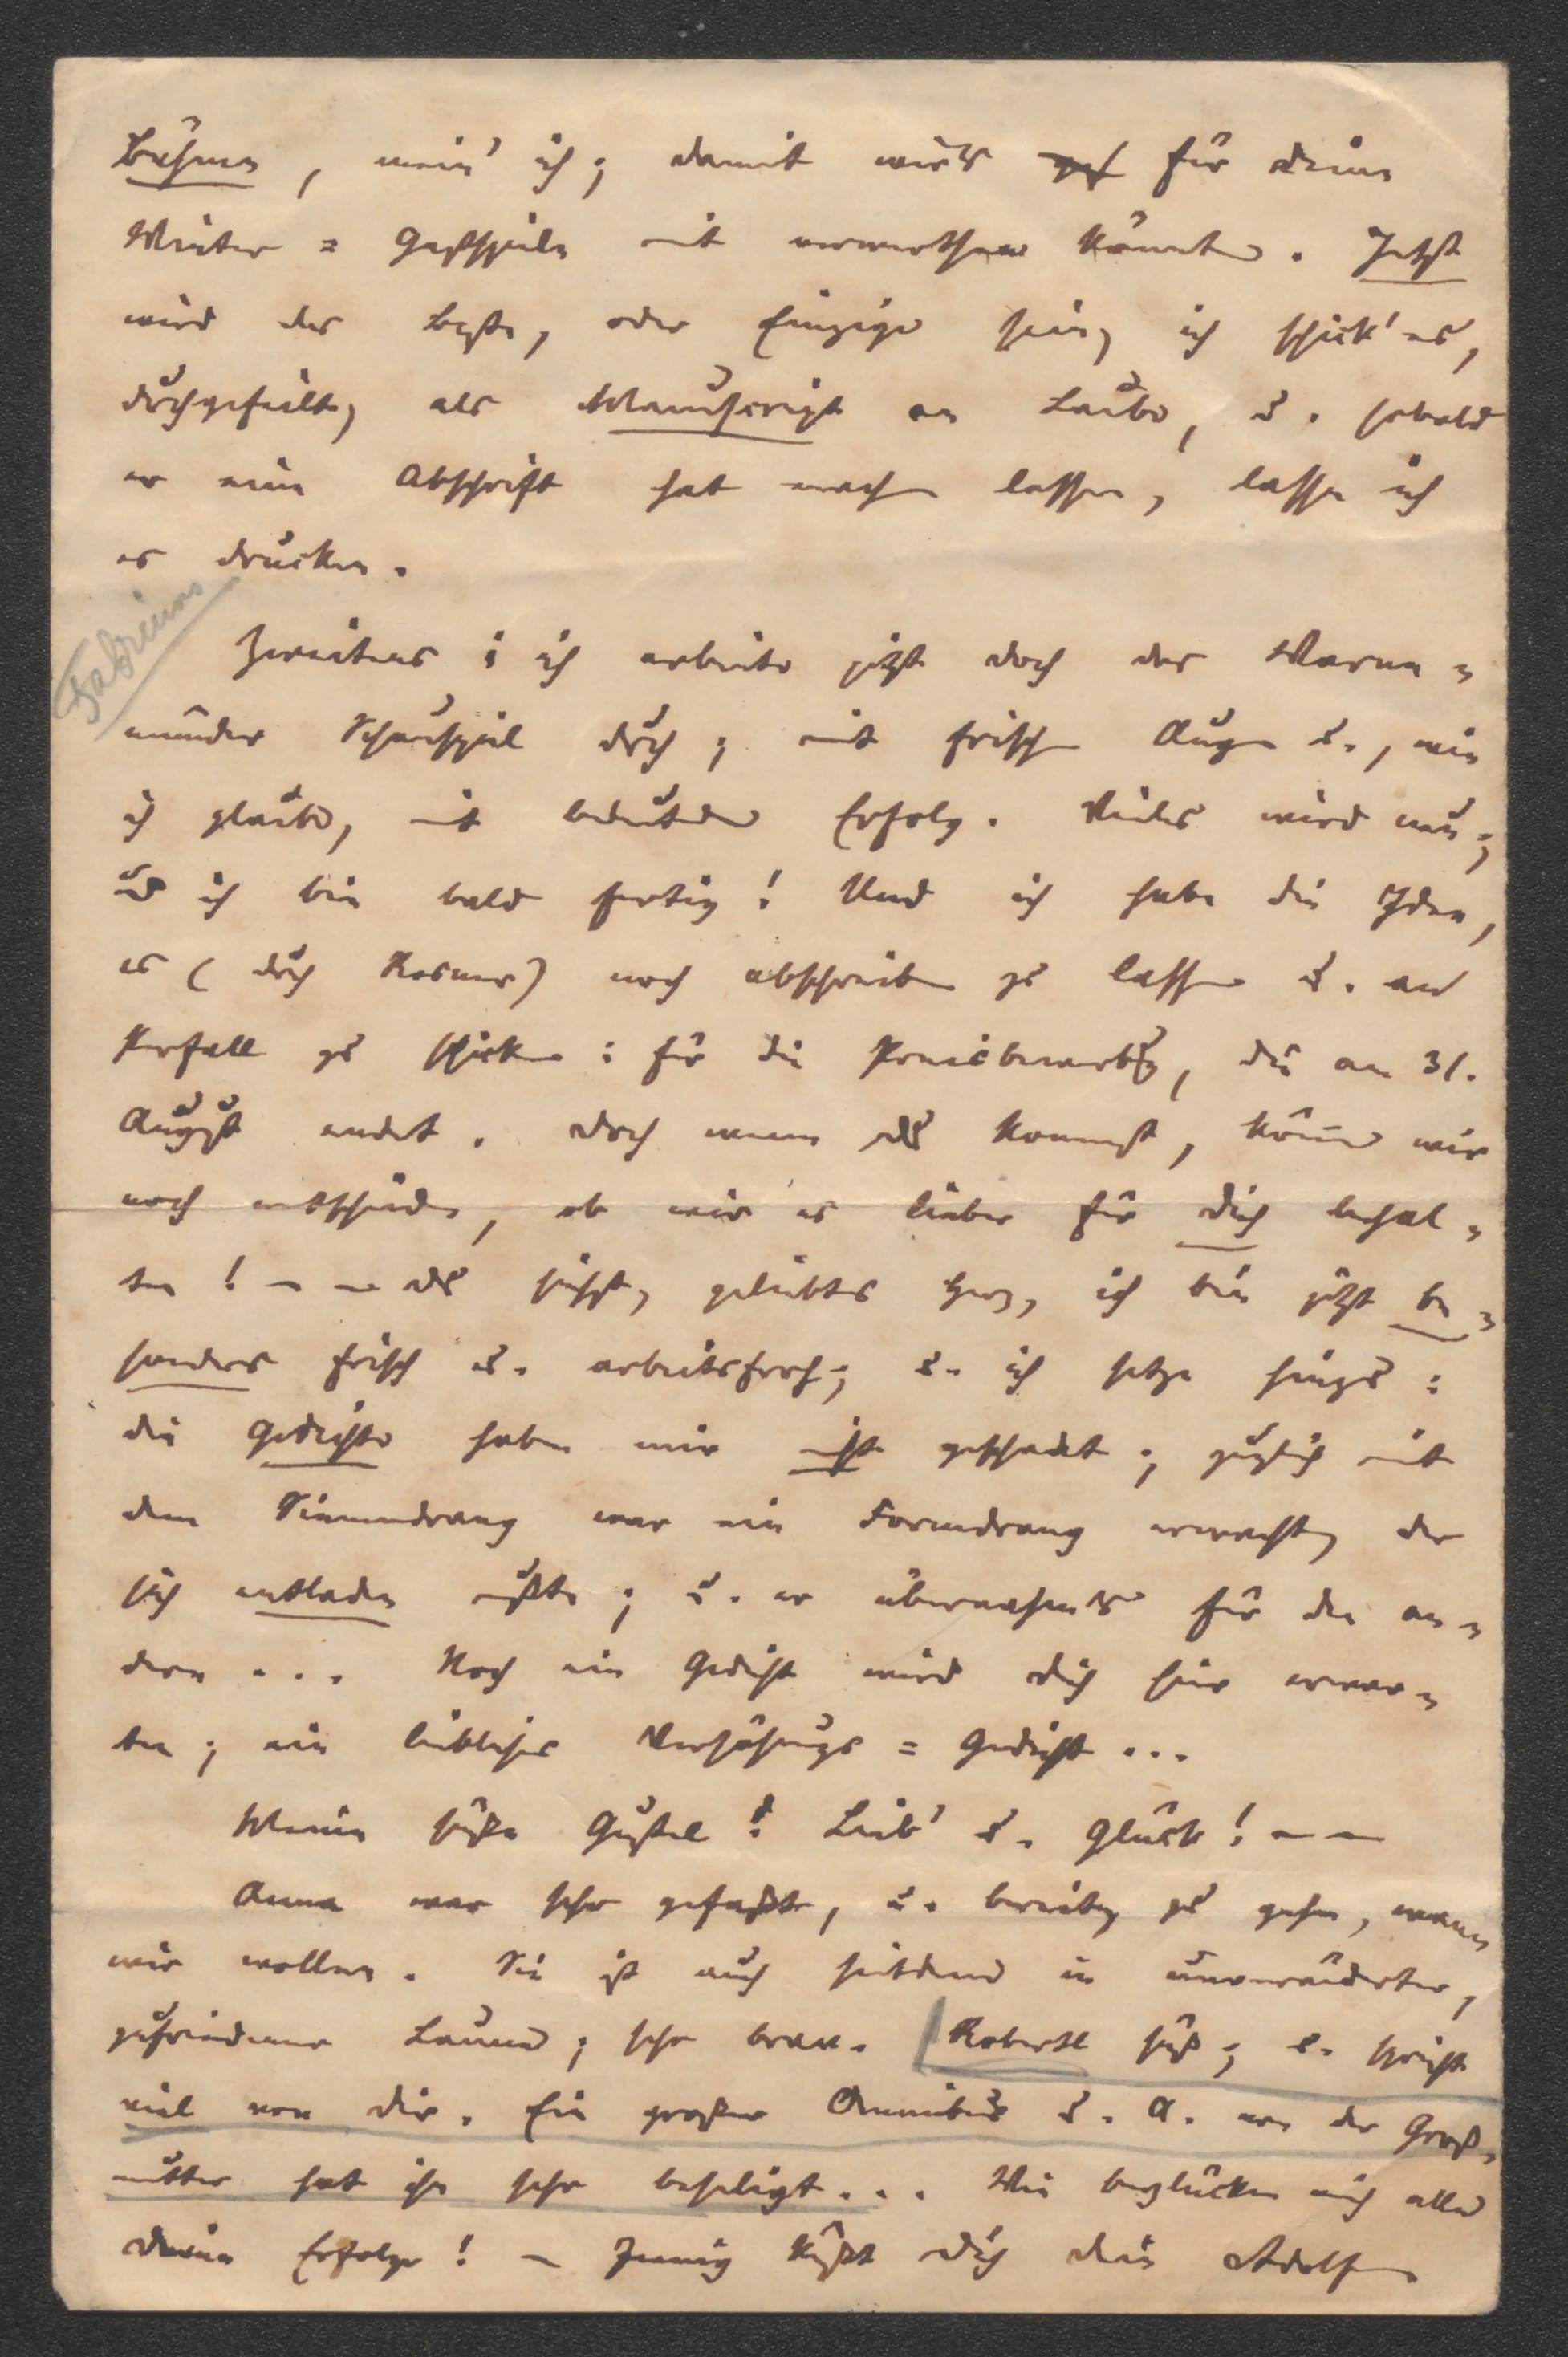 Bühnen, mein' ich; damit wir's für deine
Winter=Gastspiele mit verwerthen könnten. Jetzt
wird das Beste, oder Einzige sein, ich schick' es,
durchgefeilt, als Manuscript an Laube, u. sobald
er eine Abschrift hat machen lassen, lasse ich
es drucken.
Fabricius
Zweitens: ich arbeite jetzt doch das Warne=
münder Schauspiel durch; mit frischen Augen u., wie
ich glaube, mit bedeutendem Erfolg. Vieles wird neu;
und ich bin bald fertig! Und ich habe die Idee,
es (durch Kosmer) noch abschreiben zu lassen u. an
Perfall zu schicken: für die Preisbewerbung, die am 31.
August endet. Doch wenn du kommst, können wir
noch entscheiden, ob wir es lieber für dich behal=
ten! – – Du siehst, geliebtes Herz, ich bin jetzt be=
sonders frisch u. arbeitsfroh; u. ich setze hinzu:
die Gedichte haben mir nicht geschadet; zugleich mit
dem Sinnendrang war ein Formdrang erwacht, der
sich entladen mußte; u. er übernahm's für den an=
dern ... Noch ein Gedicht wird dich hier erwar=
ten; ein liebliches Versöhnungs=Gedicht ...
Meine süße Gustel! Lieb' u. Glück! – –
Anna war sehr gefaßt, u. bereit, zu gehn, wann
wir wollen. Sie ist auch seitdem in unveränderter,
zufriedener Laune; sehr brav. Robertl süß; u. spricht
viel von dir. Ein großer Omnibus u. A. von der Groß=
mutter hat ihn sehr beseligt ... Wie beglücken mich alle
deine Erfolge! – Innig küßt dich dein Adolf